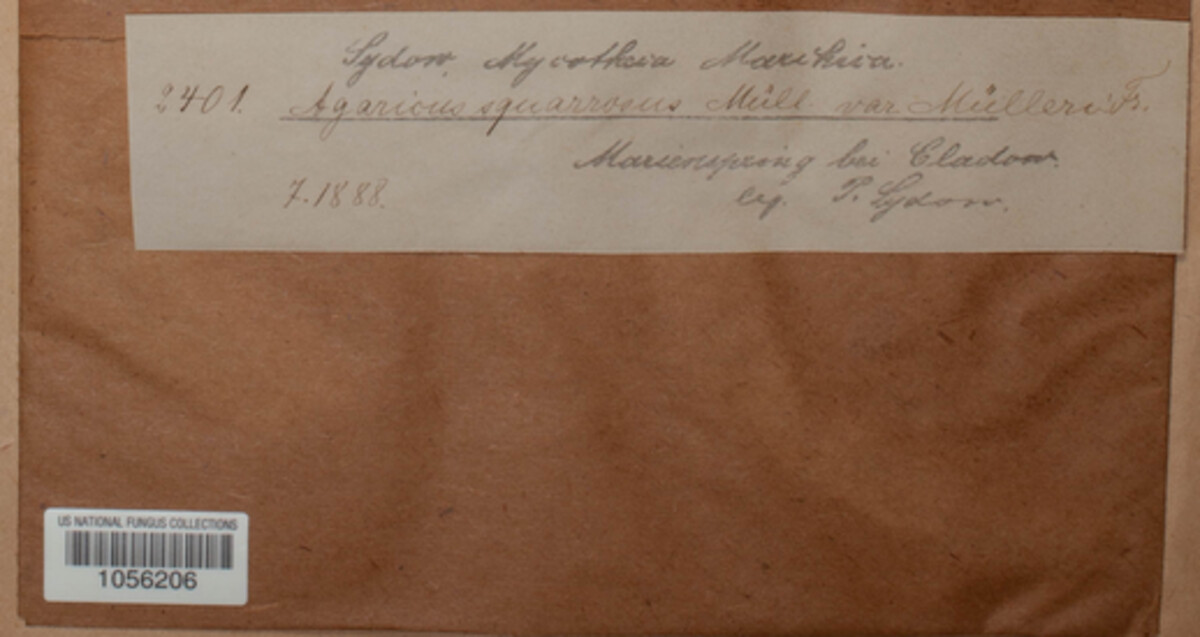 Sydow, Mycotheca Marchica.
2401. Agaricus squarrosus Müll. var. Mülleri Fr.
Marienspring bei Cladow.
7.1888. leg. P. Sydow.
US NATIONAL FUNGUS COLLECTIONS
1056206